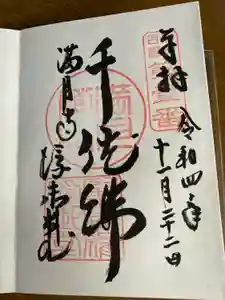 奉拝
令和四年
十一月二十二日
千体佛
満月寺
浮御堂